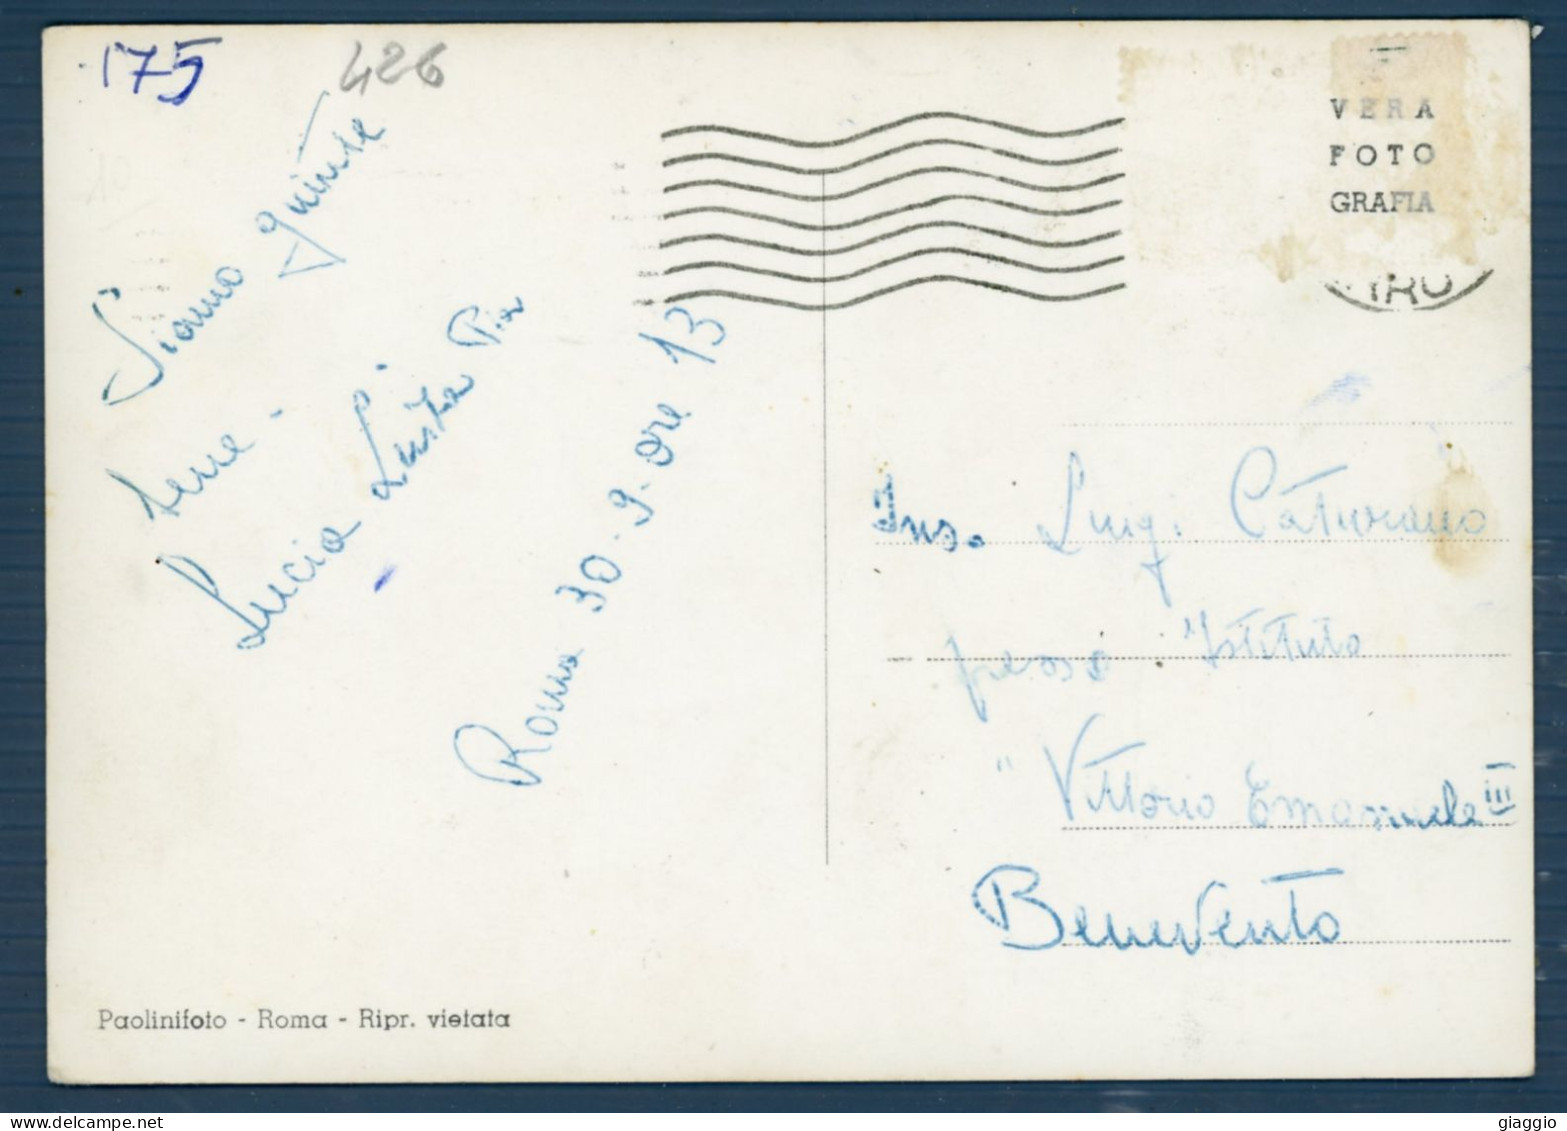 175
426
Siamo giunte
bene -
Lucia Luisa Pia
Roma 30-9-ore 13
VERA
FOTO
GRAFIA
Ins. Luigi Caturano
presso Istituto
"Vittorio Emanuele III
Benevento
Paolinifoto - Roma - Ripr. vietata
giaggio